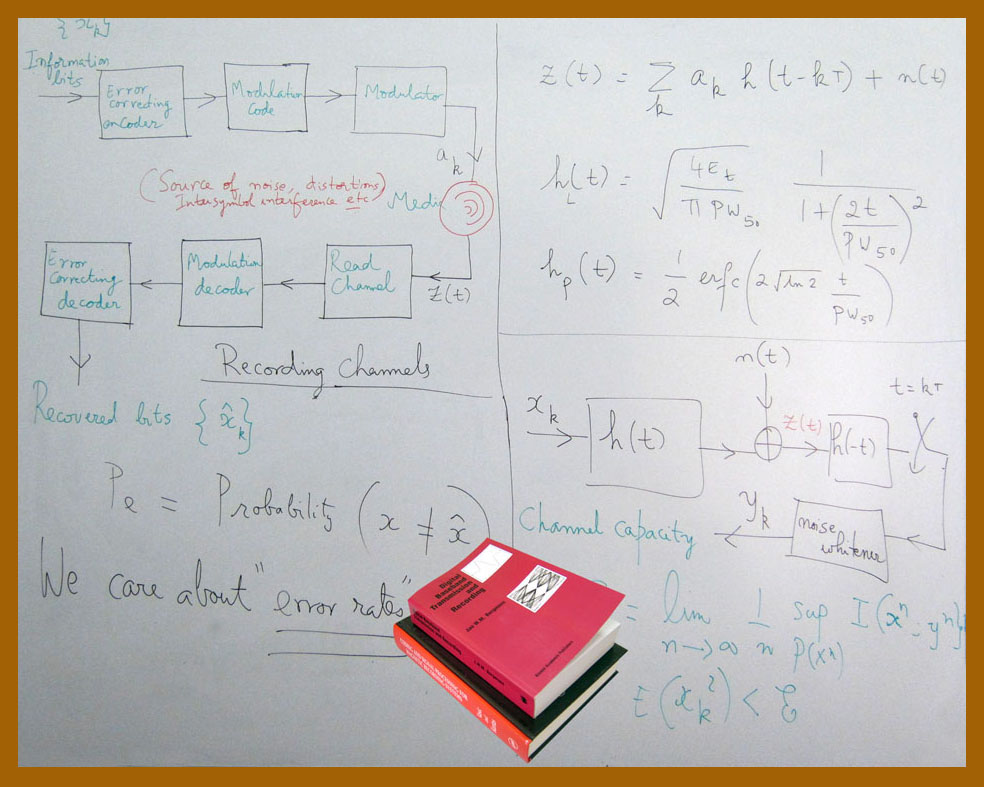 {x_k}
Information
bits
Error
correcting
encoder
Modulation
Code
Modulator
a_k
(Source of noise, distortions,
Intersymbol interference etc)
Z(t)
Read
Channel
Modulation
decoder
Error
Correcting
decoder
Recording Channels
Recovered bits {x̂_k}
P_e = Probability (x ≠ x̂)
We care about "error rates"
Z(t) = Σ_k a_k h(t-kT) + n(t)
h_L(t) = √(4E_t / π PW_50) 1 / (1+(2t/PW_50)^2)
h_p(t) = 1/2 erfc(2√ln 2 t/PW_50)
n(t)
t=kT
x_k
h(t)
Z(t)
h(-t)
y_k
noise
whitener
Channel capacity
= lim_{n→∞} 1/n sup_{P(x^n)} I(x^n; y^n)
E(x_k^2) <
Digital
Baseband
Transmission
and
Recording
Jan W.M. Bergmans